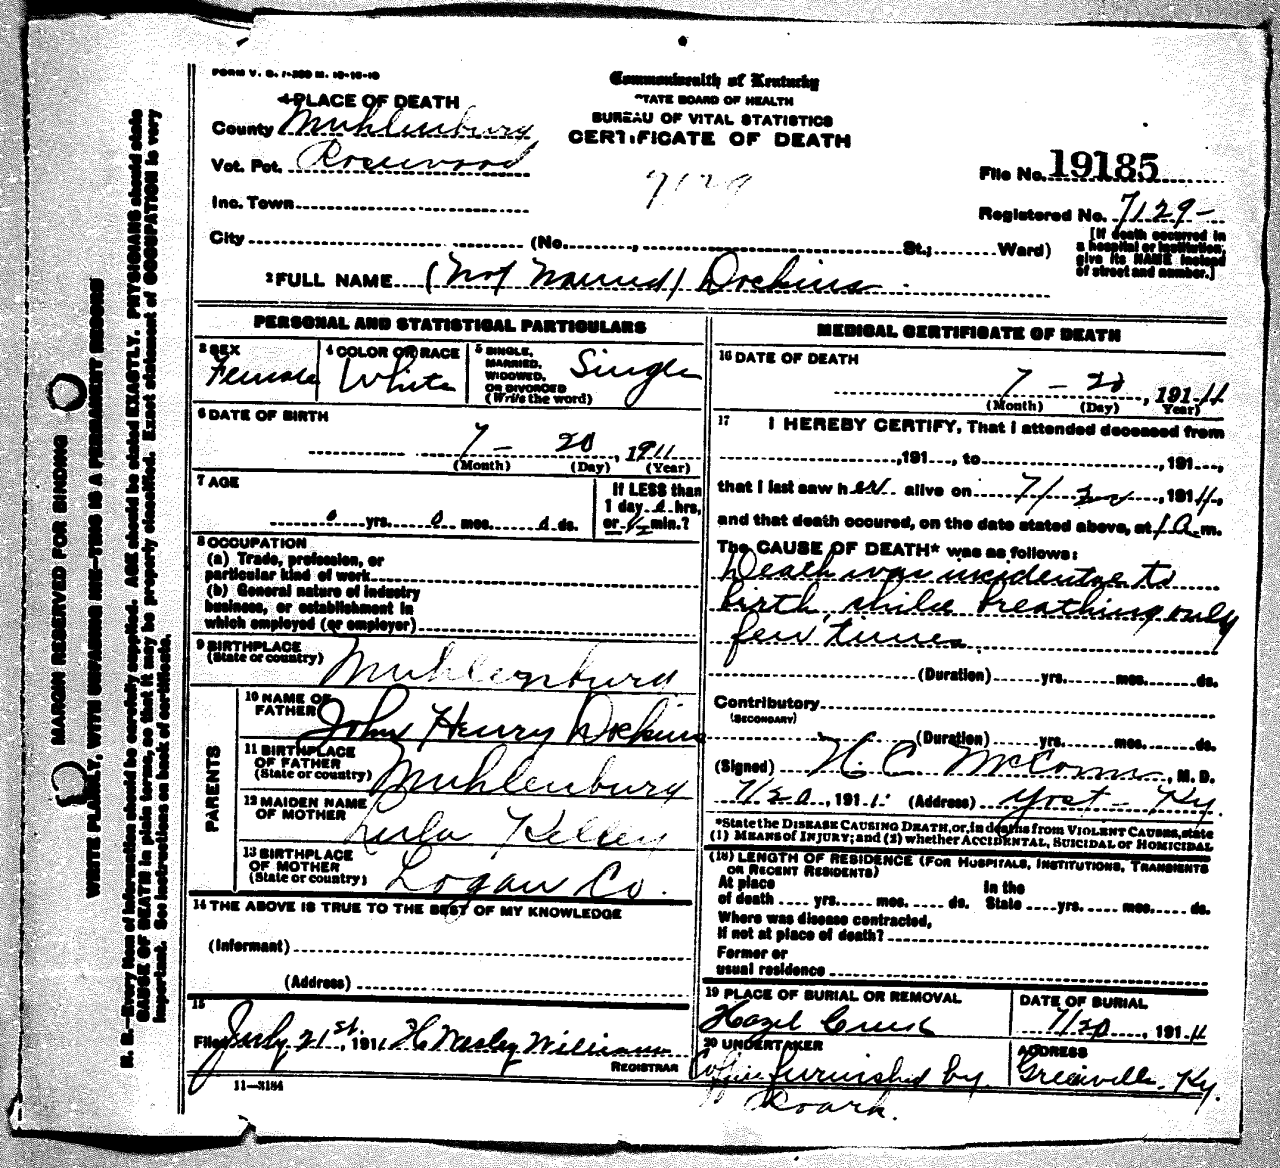 FORM V. S. 1-200 M. 10-16-10
Commonwealth of Kentucky
STATE BOARD OF HEALTH
BUREAU OF VITAL STATISTICS
CERTIFICATE OF DEATH
1 PLACE OF DEATH
County Muhlenburg
Vot. Pct. Rosewood
Inc. Town
7129
File No. 19185
Registered No. 7129-
City (No. , St.; Ward)
[If death occurred in
a hospital or institution,
give its NAME instead
of street and number.]
2 FULL NAME (Not Named) Dockins
PERSONAL AND STATISTICAL PARTICULARS
3 SEX
Female
4 COLOR OR RACE
White
5 SINGLE,
MARRIED,
WIDOWED,
OR DIVORCED
(Write the word)
Single
6 DATE OF BIRTH
7 - 20, 1911
(Month) (Day) (Year)
7 AGE
0 yrs. 0 mos. 0 ds.
If LESS than
1 day 0 hrs.
or 1/2 min.?
8 OCCUPATION
(a) Trade, profession, or
particular kind of work
(b) General nature of industry
business, or establishment in
which employed (or employer)
9 BIRTHPLACE
(State or country)
Muhlenburg
PARENTS
10 NAME OF
FATHER
John Henry Dockins
11 BIRTHPLACE
OF FATHER
(State or country)
Muhlenburg
12 MAIDEN NAME
OF MOTHER
Lula Kelley
13 BIRTHPLACE
OF MOTHER
(State or country)
Logan Co.
14 THE ABOVE IS TRUE TO THE BEST OF MY KNOWLEDGE
(Informant)
(Address)
15
Filed July 21st, 1911 H Wesley Williams
REGISTRAR
11-3184
MEDICAL CERTIFICATE OF DEATH
16 DATE OF DEATH
7 - 20, 1911
(Month) (Day) (Year)
17 I HEREBY CERTIFY, That I attended deceased from
, 191 , to , 191 ,
that I last saw her alive on 7/20, 1911,
and that death occured, on the date stated above, at 1 a m.
The CAUSE OF DEATH* was as follows:
Death was incidentae to
birth, child breathing only
few times.
(Duration) yrs. mos. ds.
Contributory
(SECONDARY)
(Duration) yrs. mos. ds.
(Signed) H. C. McCown, M. D.
7/20, 1911 (Address) Yost - Ky
*State the DISEASE CAUSING DEATH, or, in deaths from VIOLENT CAUSES, state
(1) MEANS of INJURY; and (2) whether ACCIDENTAL, SUICIDAL or HOMICIDAL
(18) LENGTH OF RESIDENCE (FOR HOSPITALS, INSTITUTIONS, TRANSIENTS
OR RECENT RESIDENTS)
At place
of death yrs. mos. ds.
In the
State yrs. mos. ds.
Where was disease contracted,
If not at place of death?
Former or
usual residence
19 PLACE OF BURIAL OR REMOVAL
Hazel Creek
DATE OF BURIAL
7/20, 1911
20 UNDERTAKER
Coffin furnished by
Roark.
ADDRESS
Greenville, Ky.
MARGIN RESERVED FOR BINDING
WRITE PLAINLY, WITH UNFADING INK-THIS IS A PERMANENT RECORD
N. B.-Every item of information should be carefully supplied. AGE should be stated EXACTLY. PHYSICIANS should state
CAUSE OF DEATH in plain terms, so that it may be properly classified. Exact statement of OCCUPATION is very
important. See instructions on back of certificate.